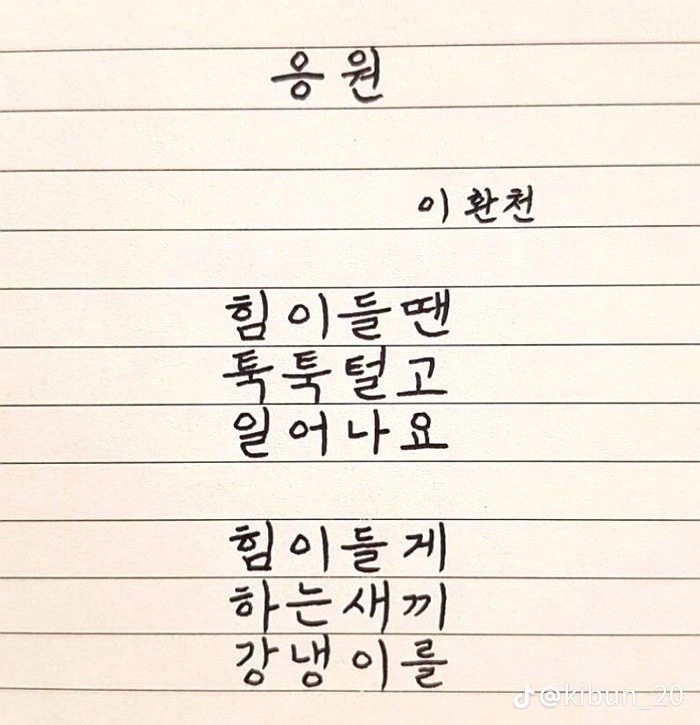 응 원
이 환 천
힘이들땐
툭툭털고
일어나요
힘이들게
하는새끼
강냉이를
@kibun_20